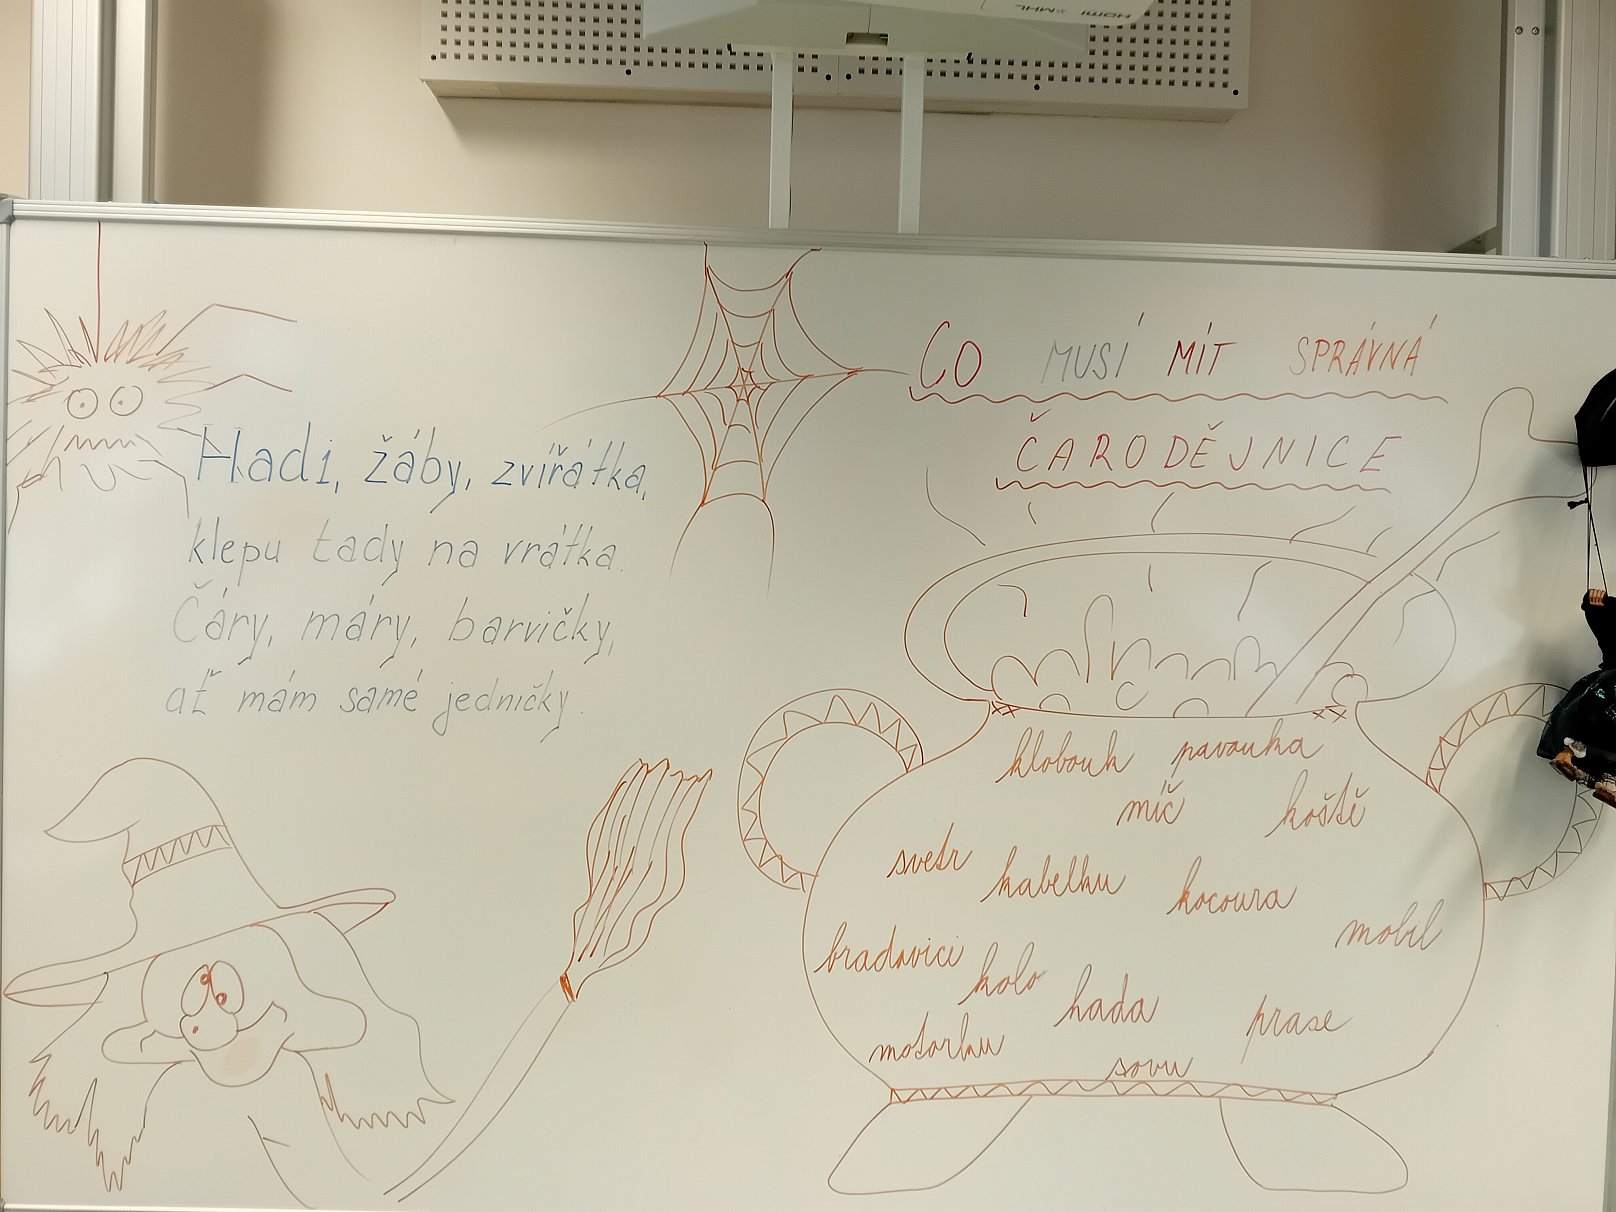 Hadi, žáby, zvířátka,
klepu tady na vrátka.
Čáry, máry, barvičky,
ať mám samé jedničky.
CO MUSÍ MÍT SPRÁVNÁ
ČARODĚJNICE
klobouk pavouka
míč koště
svetr kabelku kocoura
mobil
bradavici
kolo hada prase
motorku
sovu
HDMI MHL